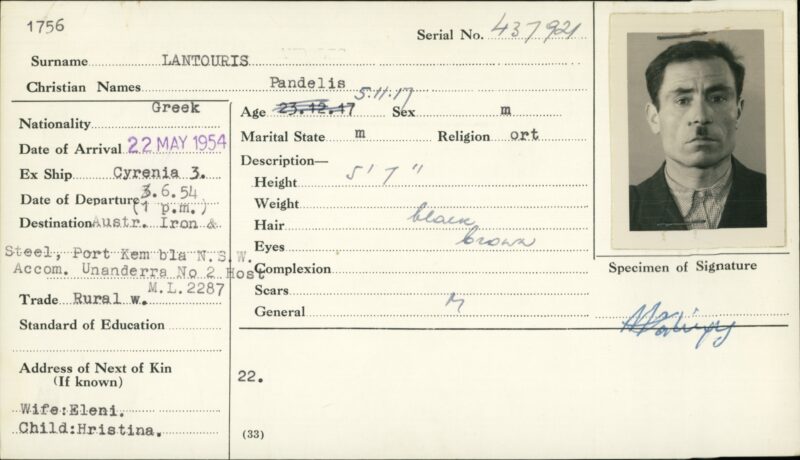 1756
Serial No. 437921
Surname LANTOURIS
Christian Names Pandelis
Nationality Greek
Date of Arrival 22 MAY 1954
Ex Ship Cyrenia 3.
Date of Departure 3.6.54
(1 p.m.)
Destination Austr. Iron &
Steel, Port Kembla N.S.W.
Accom. Unanderra No 2 Host
M.L.2287
Trade Rural w.
Standard of Education
Address of Next of Kin
(If known)
Wife:Eleni.
Child:Hristina.
5.11.17
Age 23.12.17 Sex m
Marital State m Religion ort
Description—
Height 5' 7"
Weight
Hair black
Eyes brown
Complexion
Scars
General
22.
(33)
Specimen of Signature